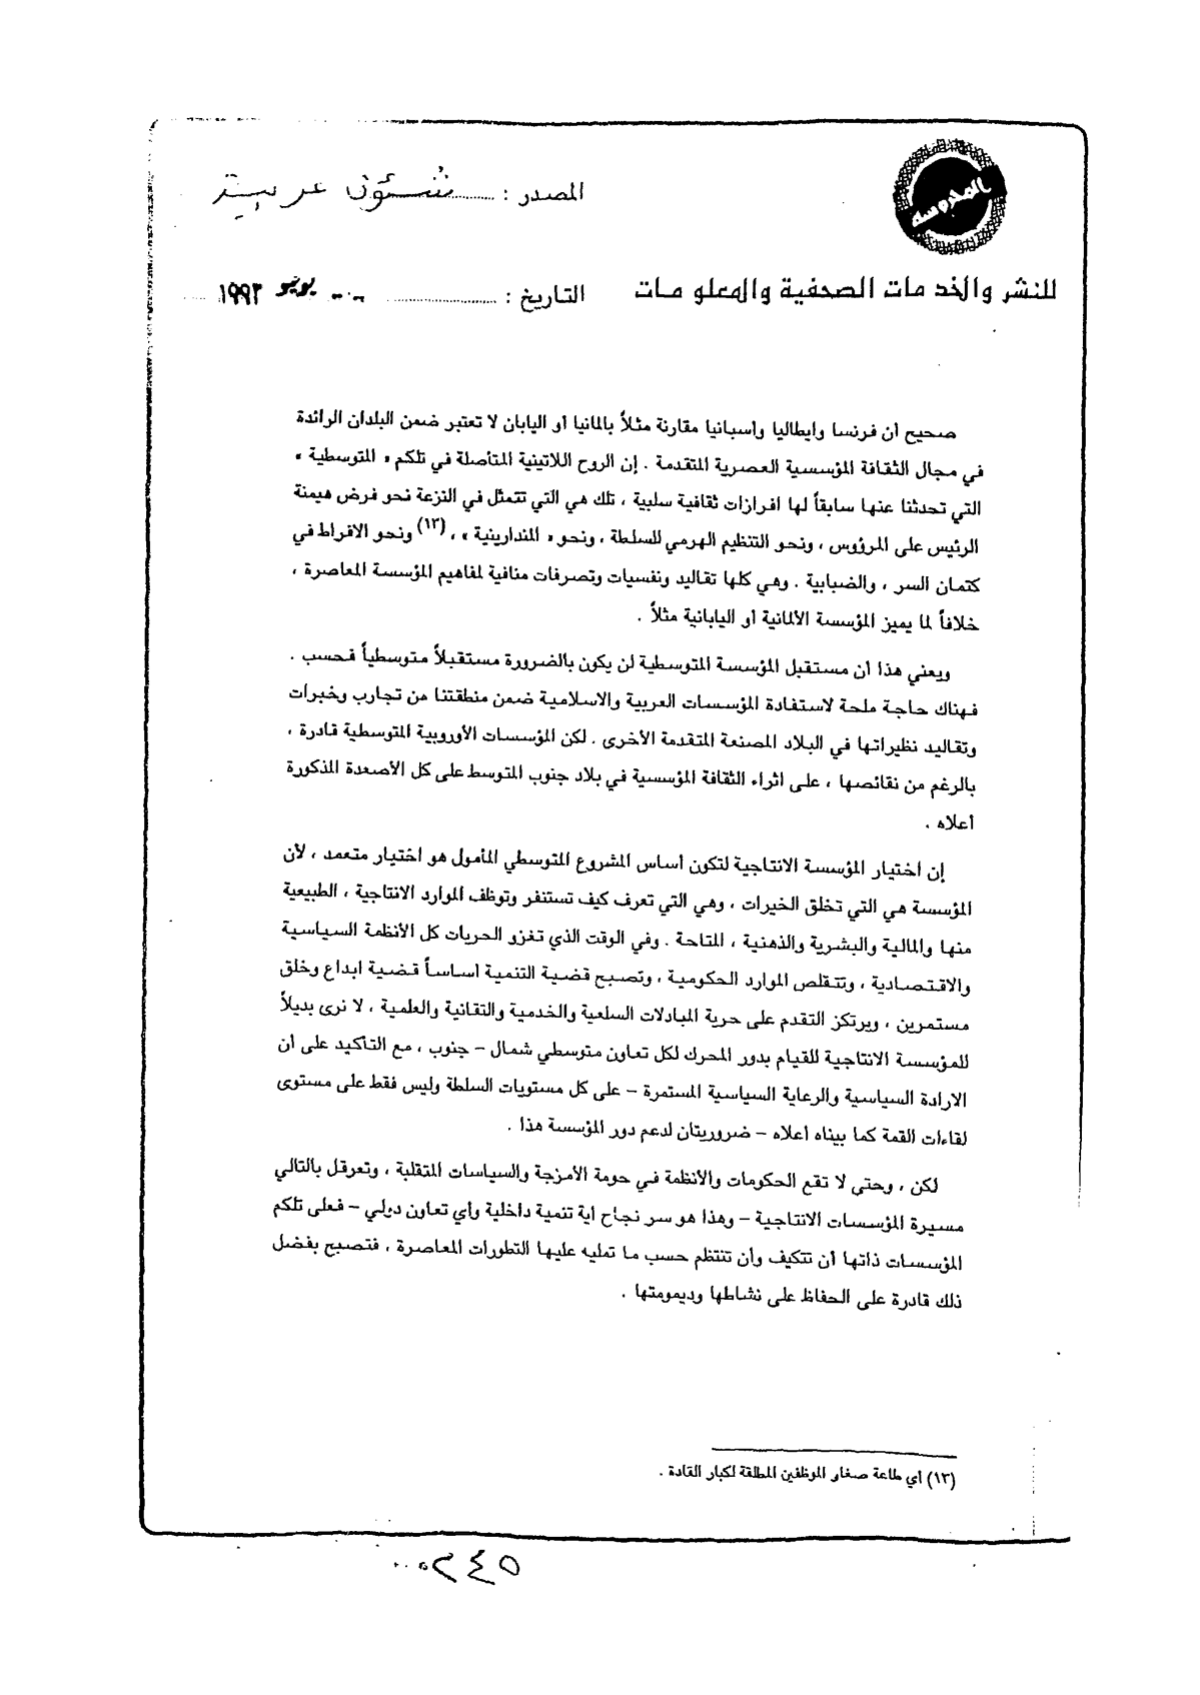 المحروسة
المصدر : شئون عربية
للنشر والخدمات الصحفية والمعلومات
التاريخ : يونيو ١٩٩٣
صحيح أن فرنسا وايطاليا واسبانيا مقارنة مثلاً بالمانيا أو اليابان لا تعتبر ضمن البلدان الرائدة
في مجال الثقافة المؤسسية العصرية المتقدمة . إن الروح اللاتينية المتأصلة في تلكم « المتوسطية »
التي تحدثنا عنها سابقاً لها افرازات ثقافية سلبية ، تلك هي التي تتمثل في النزعة نحو فرض هيمنة
الرئيس على المرؤوس ، ونحو التنظيم الهرمي للسلطة ، ونحو « المندارينية » ، (١٣) ونحو الافراط في
كتمان السر ، والضبابية . وهي كلها تقاليد ونفسيات وتصرفات منافية لمفاهيم المؤسسة المعاصرة ،
خلافاً لما يميز المؤسسة الألمانية أو اليابانية مثلاً .
ويعني هذا أن مستقبل المؤسسة المتوسطية لن يكون بالضرورة مستقبلاً متوسطياً فحسب .
فهناك حاجة ملحة لاستفادة المؤسسات العربية والاسلامية ضمن منطقتنا من تجارب وخبرات
وتقاليد نظيراتها في البلاد المصنعة المتقدمة الأخرى . لكن المؤسسات الأوروبية المتوسطية قادرة ،
بالرغم من نقائصها ، على اثراء الثقافة المؤسسية في بلاد جنوب المتوسط على كل الأصعدة المذكورة
أعلاه .
إن اختيار المؤسسة الانتاجية لتكون أساس المشروع المتوسطي المأمول هو اختيار متعمد ، لأن
المؤسسة هي التي تخلق الخيرات ، وهي التي تعرف كيف تستنفر وتوظف الموارد الانتاجية ، الطبيعية
منها والمالية والبشرية والذهنية ، المتاحة . وفي الوقت الذي تغزو الحريات كل الأنظمة السياسية
والاقتصادية ، وتتقلص الموارد الحكومية ، وتصبح قضية التنمية أساساً قضية ابداع وخلق
مستمرين ، ويرتكز التقدم على حرية المبادلات السلعية والخدمية والتقانية والعلمية ، لا نرى بديلاً
للمؤسسة الانتاجية للقيام بدور المحرك لكل تعاون متوسطي شمال – جنوب ، مع التأكيد على أن
الارادة السياسية والرعاية السياسية المستمرة – على كل مستويات السلطة وليس فقط على مستوى
لقاءات القمة كما بيناه أعلاه – ضروريتان لدعم دور المؤسسة هذا .
لكن ، وحتى لا تقع الحكومات والأنظمة في حومة الأمزجة والسياسات المتقلبة ، وتعرقل بالتالي
مسيرة المؤسسات الانتاجية – وهذا هو سر نجاح اية تنمية داخلية وأي تعاون دولي – فعلى تلكم
المؤسسات ذاتها أن تتكيف وأن تنتظم حسب ما تمليه عليها التطورات المعاصرة ، فتصبح بفضل
ذلك قادرة على الحفاظ على نشاطها وديمومتها .
(١٣) أي طاعة صغار الموظفين المطلقة لكبار القادة .